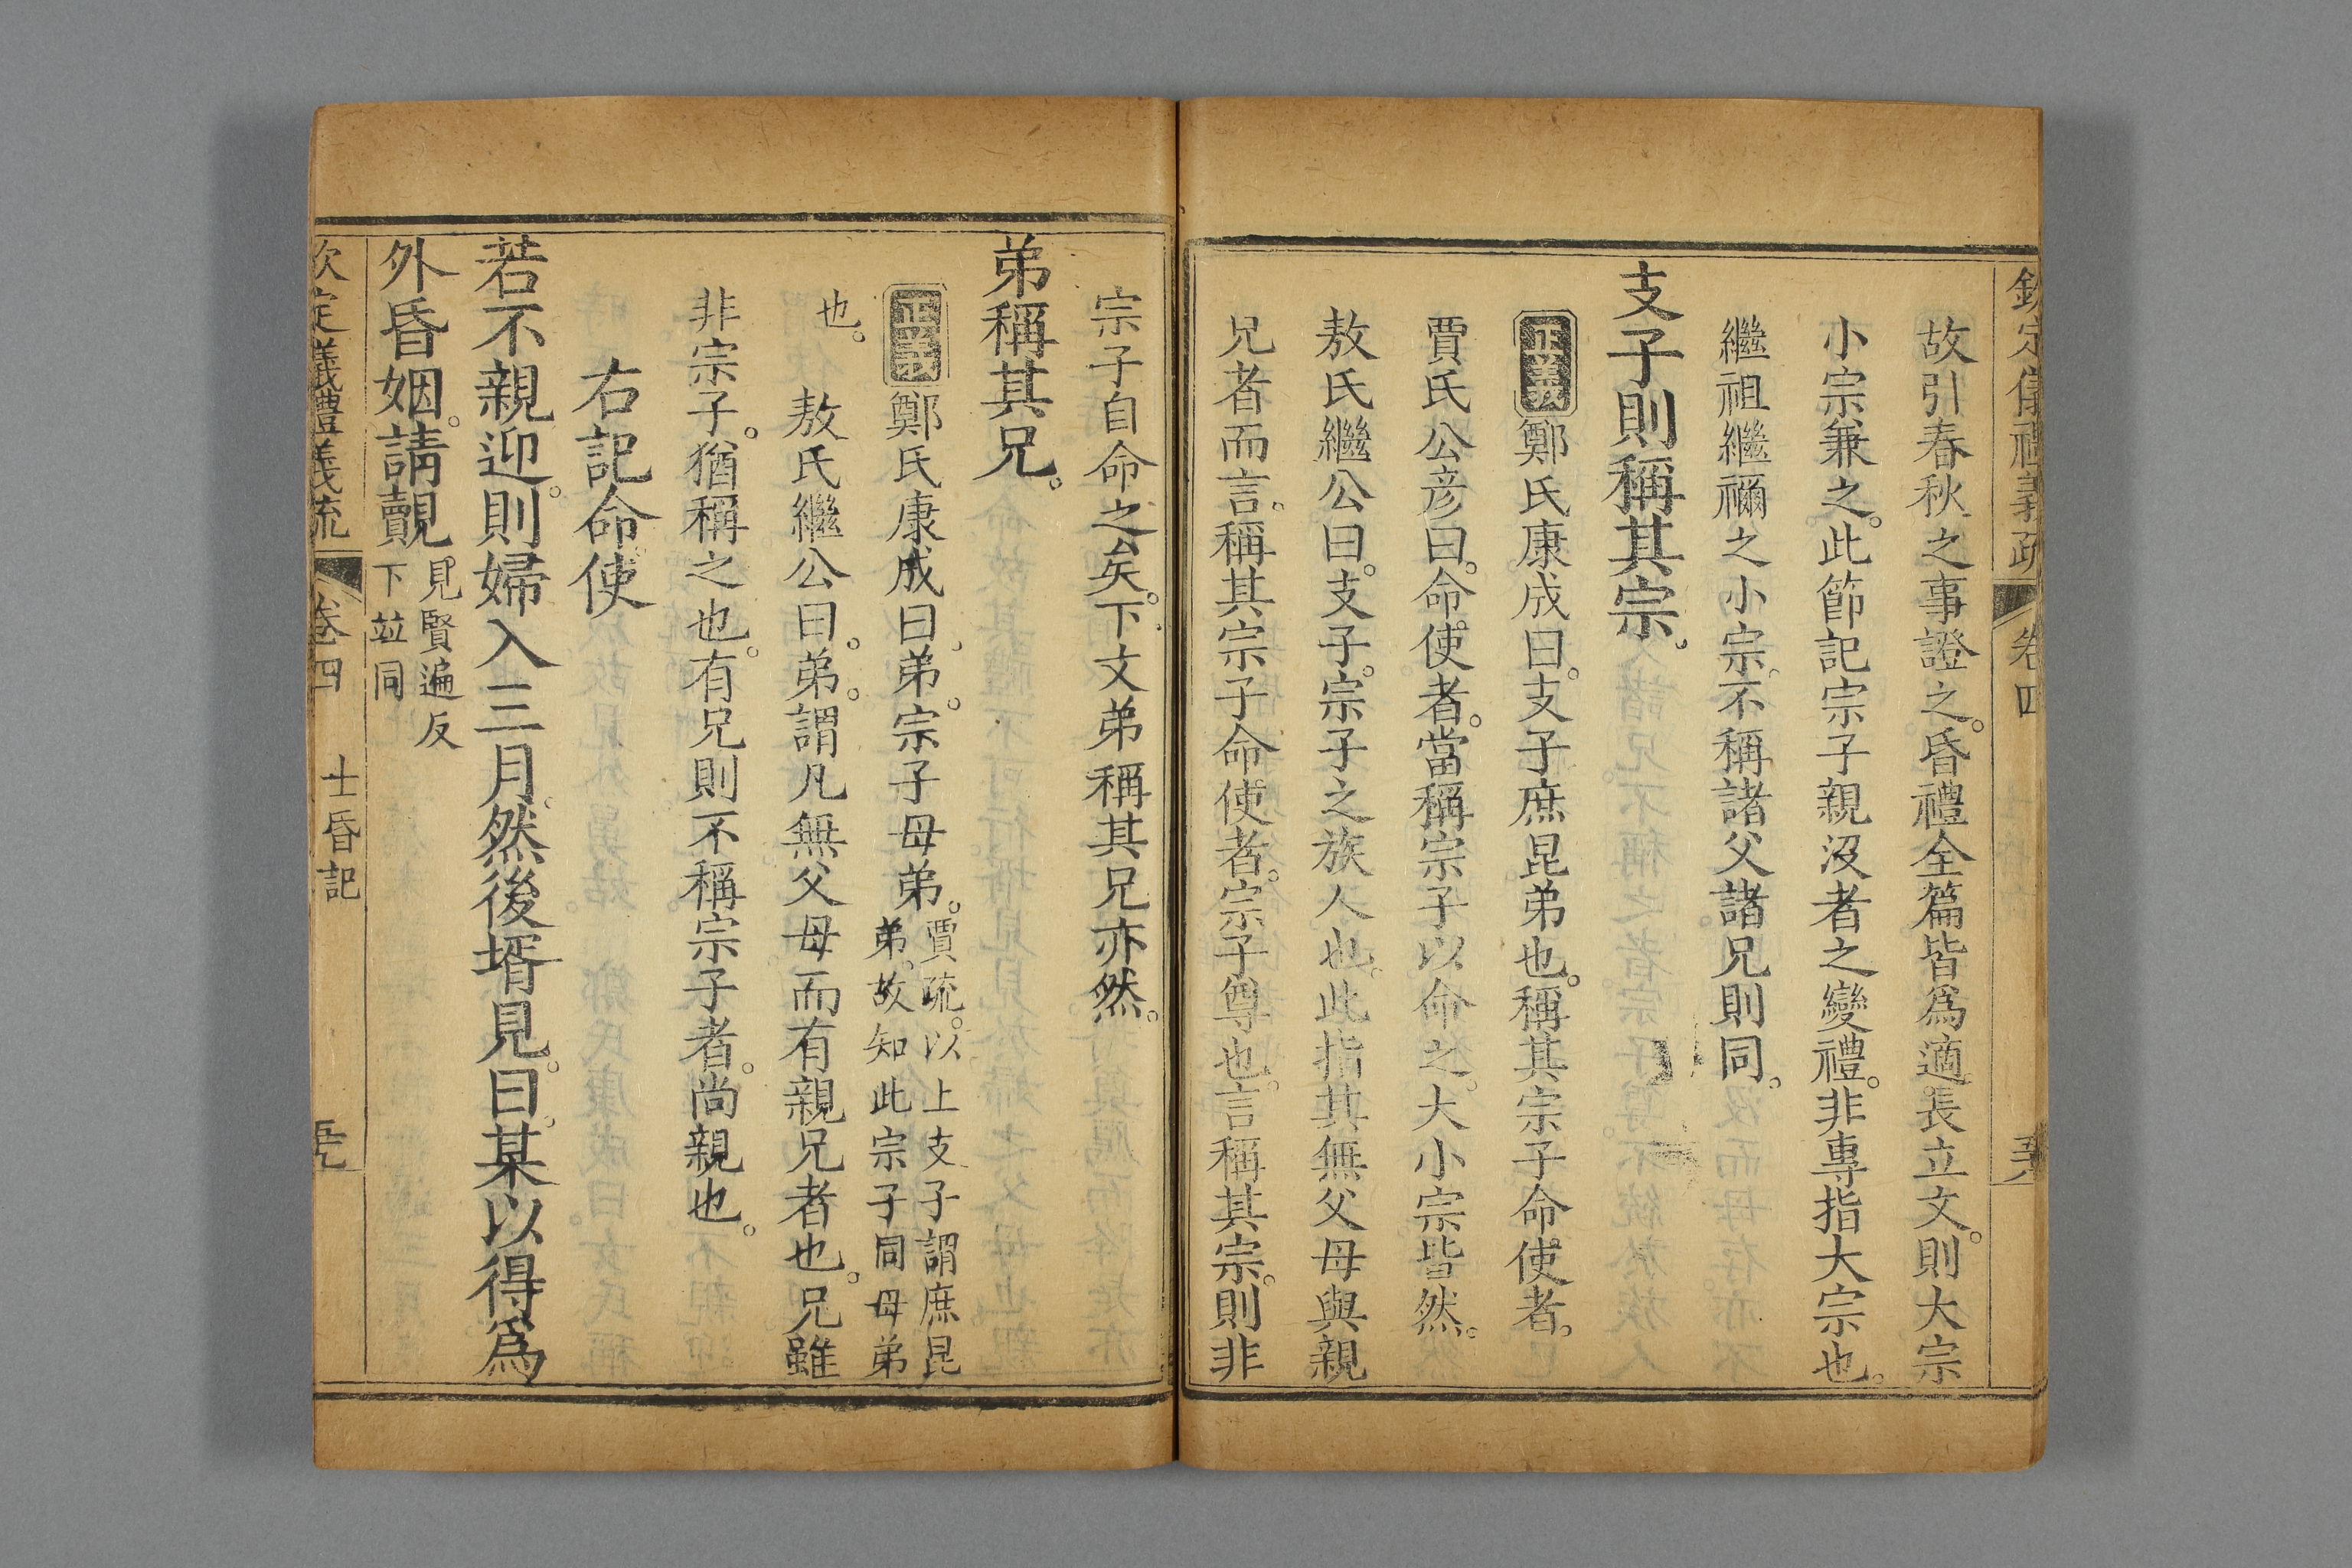 欽定儀禮義疏 卷四
故引春秋之事證之。昏禮全篇皆爲適長立文。則大宗
小宗兼之。此節記宗子親沒者之變禮。非專指大宗也。
繼祖繼禰之小宗。不稱諸父諸兄則同。
支子則稱其宗。
正義 鄭氏康成曰。支子庶昆弟也。稱其宗子命使者。
賈氏公彦曰。命使者。當稱宗子以命之。大小宗皆然。
敖氏繼公曰。支子。宗子之族人也。此指其無父母與親
兄者而言。稱其宗子命使者。宗子尊也。言稱其宗。則非
宗子自命之矣。下文弟稱其兄亦然。
弟稱其兄。
正義 鄭氏康成曰。弟。宗子母弟。
賈疏。以上支子謂庶昆
弟。故知此宗子同母弟
也。 敖氏繼公曰。弟。謂凡無父母而有親兄者也。兄雖
非宗子。猶稱之也。有兄則不稱宗子者。尚親也。
右記命使
若不親迎。則婦入三月。然後壻見。曰。某以得爲
外昏姻。請覿
見賢遍反
下並同
欽定儀禮義疏 卷四 士昏記